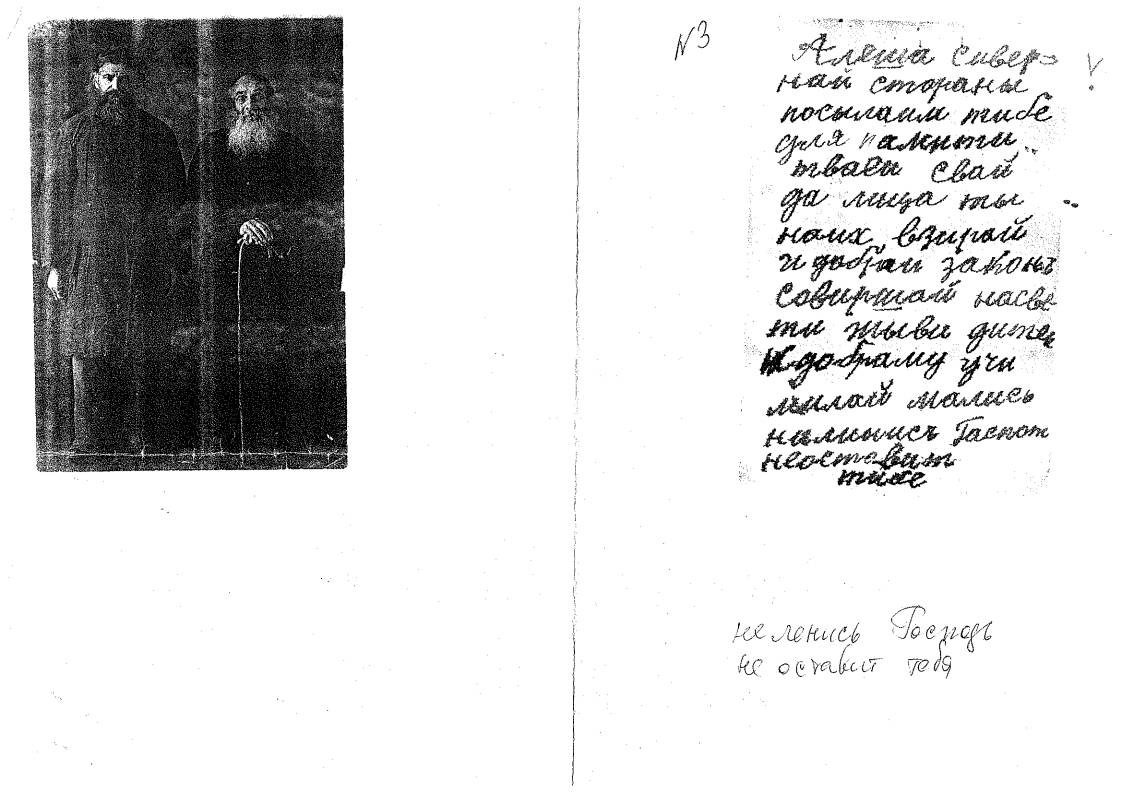 N3
Аляша сивер=
най стораны
посылаим тибе
для памити
тваей свай
да лица ты
наих взирай
и добрай законъ
совиршай насве
ти жыви дитей
к добраму учи
милай мались
ниминись Гаспот
неоставит
тибе
не ленись Господь
не оставит тебя